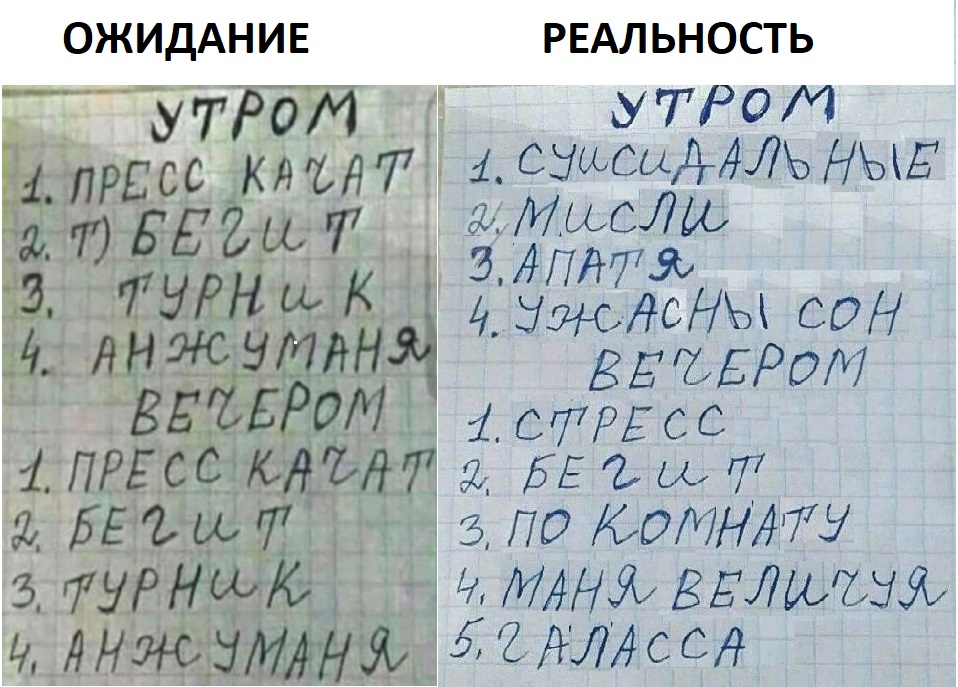 ОЖИДАНИЕ
УТРОМ
1. ПРЕСС КАЧАТ
2. Т) БЕГИТ
3. ТУРНИК
4. АНЖУМАНЯ
ВЕЧЕРОМ
1. ПРЕСС КАЧАТ
2. БЕГИТ
3. ТУРНИК
4. АНЖУМАНЯ
РЕАЛЬНОСТЬ
УТРОМ
1. СУИСИДАЛЬНЫЕ
2. МИСЛИ
3. АПАТЯ
4. УЖАСНЫ СОН
ВЕЧЕРОМ
1. СТРЕСС
2. БЕГИТ
3. ПО КОМНАТУ
4. МАНЯ ВЕЛИЧУЯ
5. ГАЛАССА